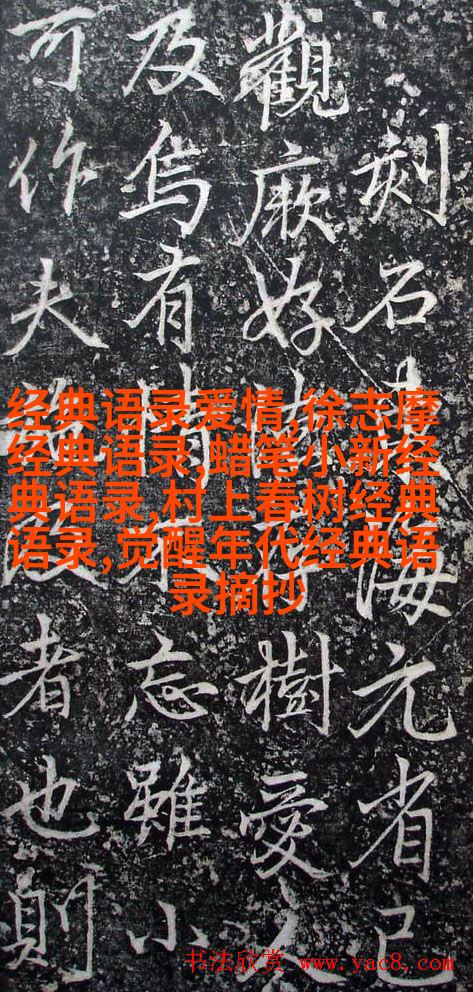 刻石海元省己
觀厥好樹愛
及烏有忘雖小
可作夫者也則
经典语录爱情,徐志摩
经典语录,蜡笔小新经
典语录,村上春树经典
语录,觉醒年代经典语
录摘抄
书法欣赏 www.yac8.com